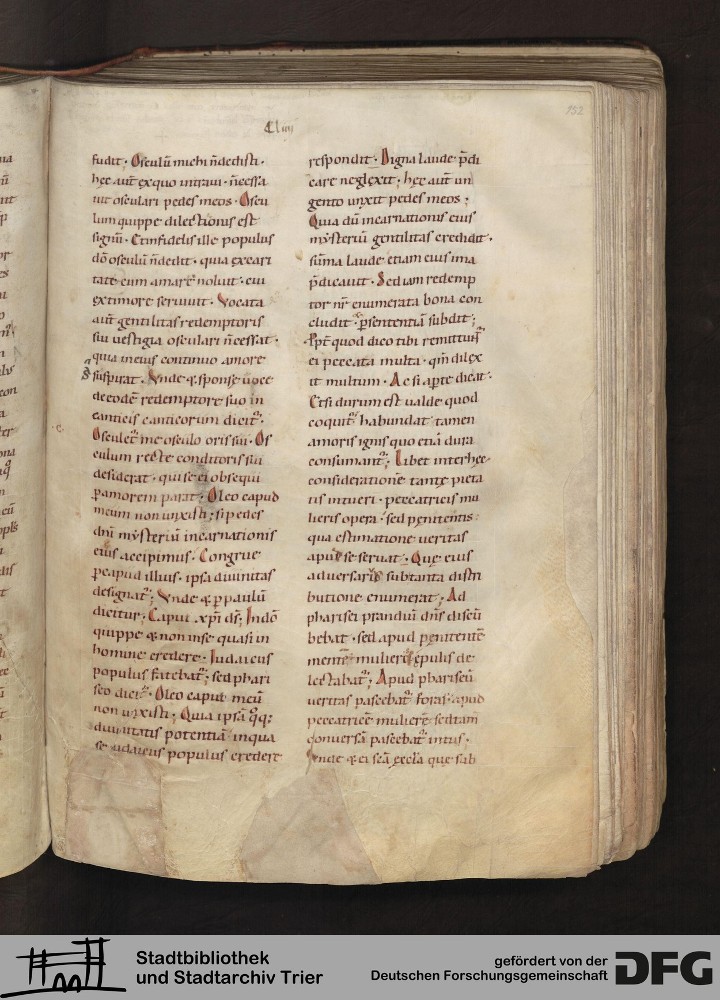 152
Clııı
fudit. Osculū michi ñ dedisti.
hec aut̄ exquo intraui. ñ cessa
uit osculari pedes meos. Oscu
lum quippe dilectionis est
signū. Et infidelis ille populus
dō osculū ñ dedit. quia ex cari
tate eum amare noluit. cui
ex timore seruiuit. Vocata
aut̄ gentilitas redemptoris
sui uestigia osculari ñ cessat.
quia in eius continuo amore
suspirat. Vnde & sponse uoce
de eodē redemptore suo in
canticis canticorum dicit̄.
Osculet̄ me osculo oris sui. Os
culum recte conditoris sui
desiderat. qui se ei obsequi
p amorem parat. Oleo capud
meum non unxisti; si pedes
dn̄i mẏsteriū incarnationis
eius accipimus. Congrue
p capud illius. ipsa diuinitas
designat̄; Vnde & p paulū
dicitur; Caput xp̄i ds̄; In dō
quippe & non in se quasi in
homine credere. Iudaicus
populus fatebat̄; sed phari
seo dicit̄. Oleo caput meū
non unxisti; Quia ipsā q̨q;
diuinitatis potentiā in qua
se iudaicus populus credere
respondit. Digna laude p̄di
care neglexit; hec aut̄ un
gento unxit pedes meos;
Quia dū incarnationis eius
mẏsteriū gentilitas credidit.
sūma laude etiam eius ima
p̄dicauit. Sed iam redemp
tor nr̄ enumerata bona con
cludit. p sententiā subdit;
Ppt̄ quod dico tibi remittūt̄
ei peccata multa. qm̄ dilex
it multum. Ac si apte dicat.
Etsi durum est ualde quod
coquit̄ habundat tamen
amoris ignis quo etiā dura
consumant̄; Libet inter hec
consideratione tantę pieta
tis intueri. peccatricis mu
lieris opera. sed penitentis.
qua estimatione ueritas
apud se seruat. Que eius
aduersariis sub tanta distri
butione enumerat. Ad
pharisei prandiū dn̄s discū
bebat. sed apud penitentē
mentē mulieris epulis de
lectabat̄; Apud phariseū
ueritas pascebat̄ foras. apud
peccatricē mulierē sed tam
conuersā pascebat̄ intus.
Vnde & ei scā eccła que sub
Stadtbibliothek
und Stadtarchiv Trier
gefördert von der
Deutschen Forschungsgemeinschaft
DFG